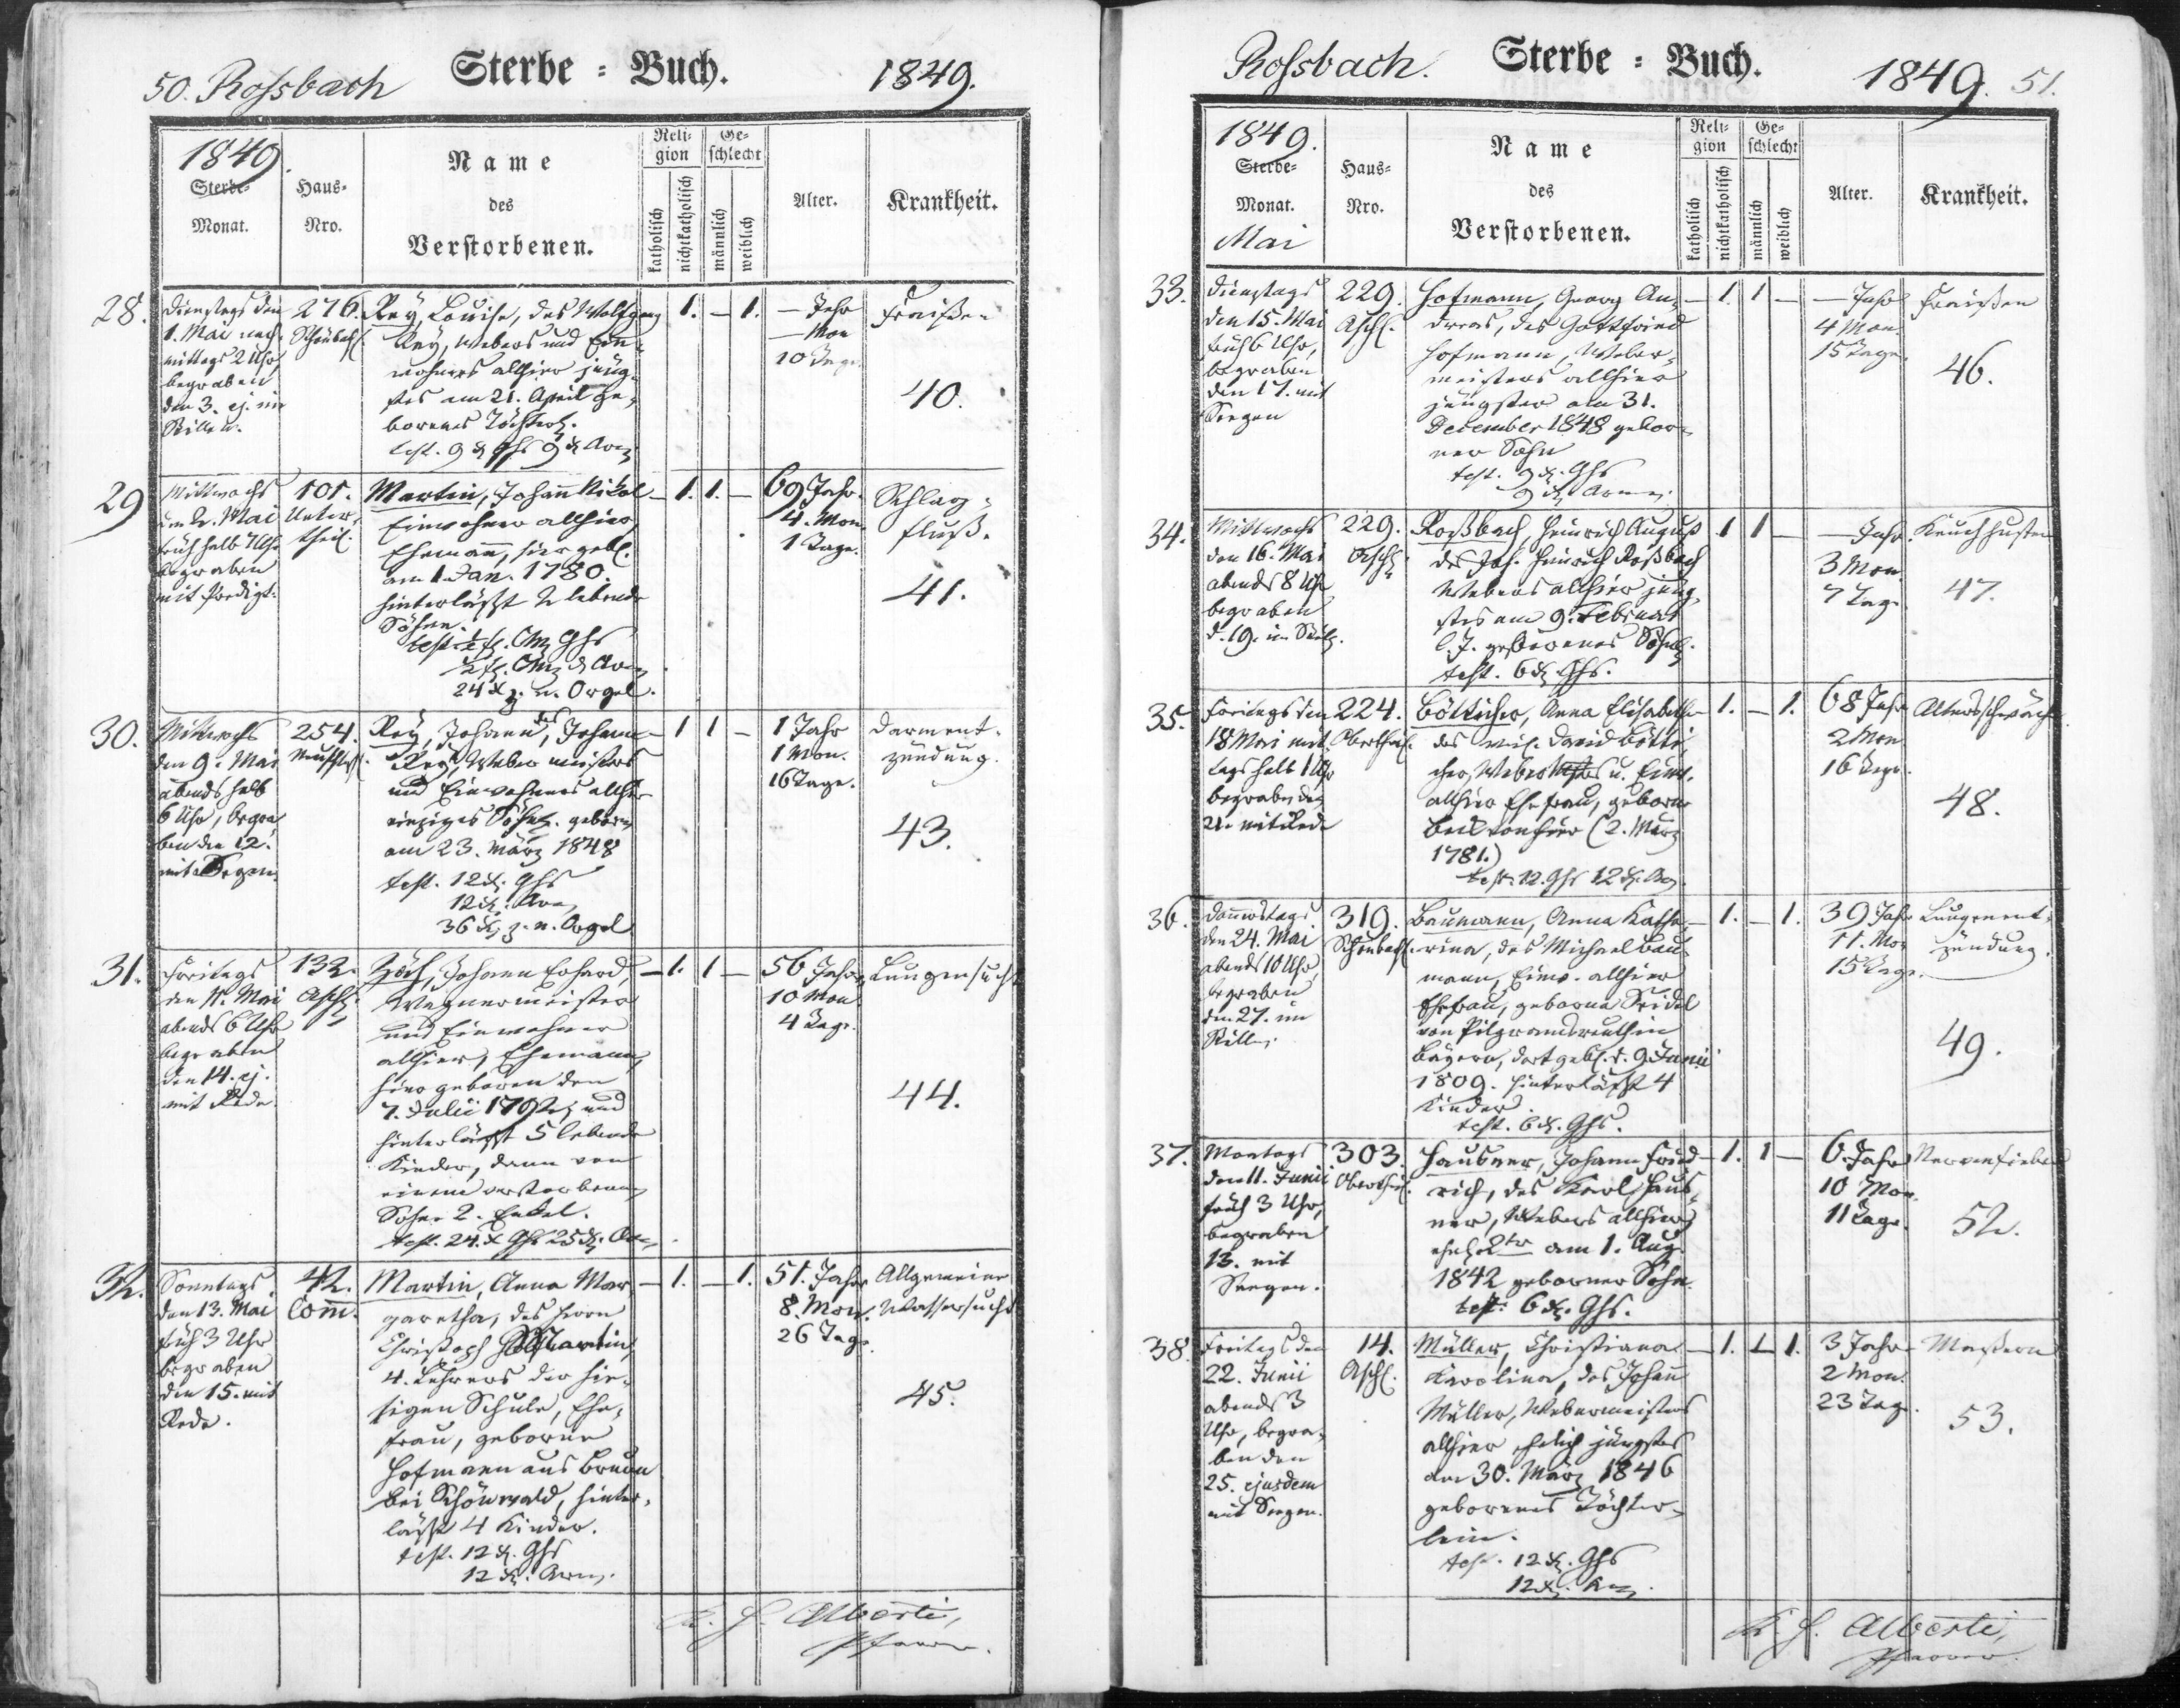 50. Rossbach Sterbe = Buch. 1849.
1849.
Sterbe-
Monat.
Haus-
Nro.
Name
des
Verstorbenen.
Reli-
gion
katholisch
nichtkatholisch
Ge-
schlecht
männlich
weiblich
Alter.
Krankheit.
28.
Dienstags den
1. Mai nach-
mittags 2 Uhr,
begraben
den 3. ej. im
Stillen.
276.
Schönbach
Rey, Louise, des Wolfgang
Rey, Webers und Ein-
wohners allhier jüng-
stes am 21. April ge-
borenes Töchterl.
1. – 1.
– Jahr
– Mon
10 Tage
Fraißen
40.
29
Mittwochs
den 2. Mai
früh halb 7 Uhr
begraben
mit Predigt.
101.
Unter-
theil.
Martin, Johann Nikol
Einwohner allhier,
Ehemann, hier geb.
am 1 Jan. 1780.
hinterläßt 2 lebende
Söhne.
24 x z. n. Orgel.
– 1. 1. –
69 Jahr.
4. Mon.
1 Tage.
Schlag-
fluß.
41.
30.
Mittwochs
den 9. Mai
abends halb
6 Uhr, begra-
ben den 12.
mit Segen.
254.
Rey, Johann, des Johann
Rey, Weber meisters
und Einwohners allhier
einziges Söhnl. geboren
am 23. März 1848
test. 12 x. Ghs
12 x. Arm
36 x z. n. Orgel
– 1 1 –
1 Jahr
1 Mon.
16 Tage.
Darment-
zündung.
43.
31.
Freitags
den 11. Mai
abends 6 Uhr
begraben
den 14. ej.
mit Rede.
132.
Asch.
Johann Erhard,
Wagnermeister
und Einwohner
allhier, Ehemann,
hier geboren den
7. Julii und
hinterläßt 5 lebende
Kinder, dann von
einem verstorbenen
Sohne 2. Enkel.
– 1. 1 –
56 Jahre
10 Mon
4 Tage.
Lungensucht
44.
32.
Sonntags
den 13. Mai
früh 3 Uhr
begraben
den 15. mit
Rede.
42.
Com̄.
Martin, Anna Mar-
garetha, des Herrn
Christoph Martin,
4. Lehrers der hie-
sigen Schule, Ehe-
frau, geborne
Hofmann aus Brunn
bei Schönwald, hinter-
läßt 4 Kinder.
test. 12 x. Ghs
12 x. Arm.
– 1. – 1.
51. Jahre
8. Mon.
26 Tage
Allgemeine
Wassersucht
45.
Alberti,
Pfarrer.
Rossbach. Sterbe = Buch. 1849. 51.
1849.
Sterbe-
Monat.
Mai
Haus-
Nro.
Name
des
Verstorbenen.
Reli-
gion
katholisch
nichtkatholisch
Ge-
schlecht
männlich
weiblich
Alter.
Krankheit.
33.
Dienstags
den 15. Mai
früh 6 Uhr,
begraben
den 17. mit
Seegen
229.
Asch.
Hofmann, Georg An-
dreas, des Gottfried
Hofmann, Weber-
meisters allhier
jüngster am 31.
December 1848 gebor-
ner Sohn
test. 9 x. Ghs
9 x Arm.
– 1. 1 –
– Jahr
4 Mon.
15 Tage.
Fraißen
46.
34.
Mittwochs
den 16. Mai
abends 8 Uhr
begraben
d. 19. im Still.
229.
Asch.
Roßbach, Heinrich August
des Joh. Heinrich Roßbach
Webers allhier jüng-
stes am 9. Februar
l. J. geborenes Söhnl.
test. 6 x. Ghs.
1 1 –
– Jahr.
3 Mon.
7 Tage
Keuchhusten
47.
35.
Freitags den
18 Mai mit-
tags halb 1 Uhr
begraben den
21. mit Rede
224.
Obertheil.
Bötticher, Anna Elisabetha
des weil. David Bötti-
cher, Weber u. Einw.
allhier Ehefrau, geborne
von hier (2. März
1781.)
test. 12. Ghs 12 x. Arm.
– 1. – 1.
68 Jahr
2 Mon
16 Tage.
Altersschwäche
48.
36.
Donnerstags
den 24. Mai
abends 10 Uhr,
begraben
den 27. im
Stillen
319.
Schönbach.
Baumann, Anna Katha-
rina, des Michael Bau-
mann, Einw. allhier
Ehefrau, geborne Seidel
von Pilgramsreuth in
Bayern, dort geb. d. 9. Junii
1809. hinterläßt 4
Kinder.
test. 6 x. Ghs.
– 1. – 1.
39 Jahr
11. Mon
15 Tage.
Lungenent-
zündung.
49.
37.
Montags
den 11. Junii
früh 3 Uhr,
begraben
13. mit
Seegen.
303.
Obertheil.
Hausner, Johann Fried-
rich, des Karl Haus-
ner, Webers allhier
ehel. 2ter am 1. Aug.
1842 geborner Sohn.
test. 6 x. Ghs.
– 1. 1 –
6. Jahre
10 Mon.
11 Tage.
Nervenfieber
52.
38.
Freitags den
22. Junii
abends 3
Uhr, begra-
ben den
25. ejusdem
mit Seegen.
14.
Asch.
Müller, Christiana
Karolina, des Johann
Müller, Webermeisters
allhier ehelich jüngstes
am 30. März 1846
geborenes Töchter-
lein.
test. 12 x. Ghs
12 x. Arm.
– 1. – 1.
3 Jahr
2 Mon.
23 Tag.
Masern
53.
Alberti,
Pfarrer.